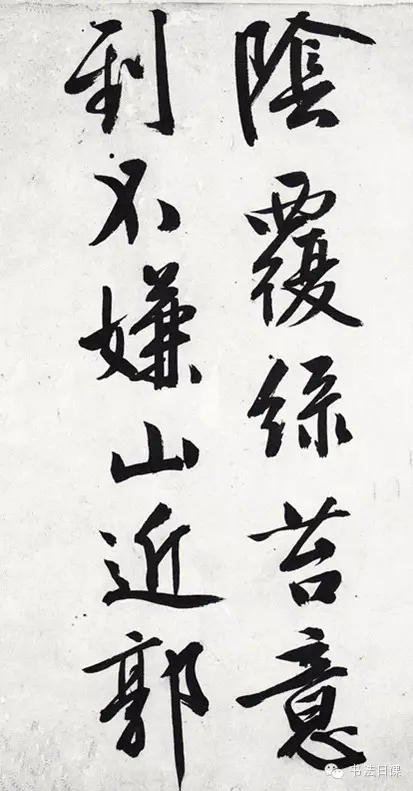 陰覆綠苔意
到不嫌山近郭
书法日课